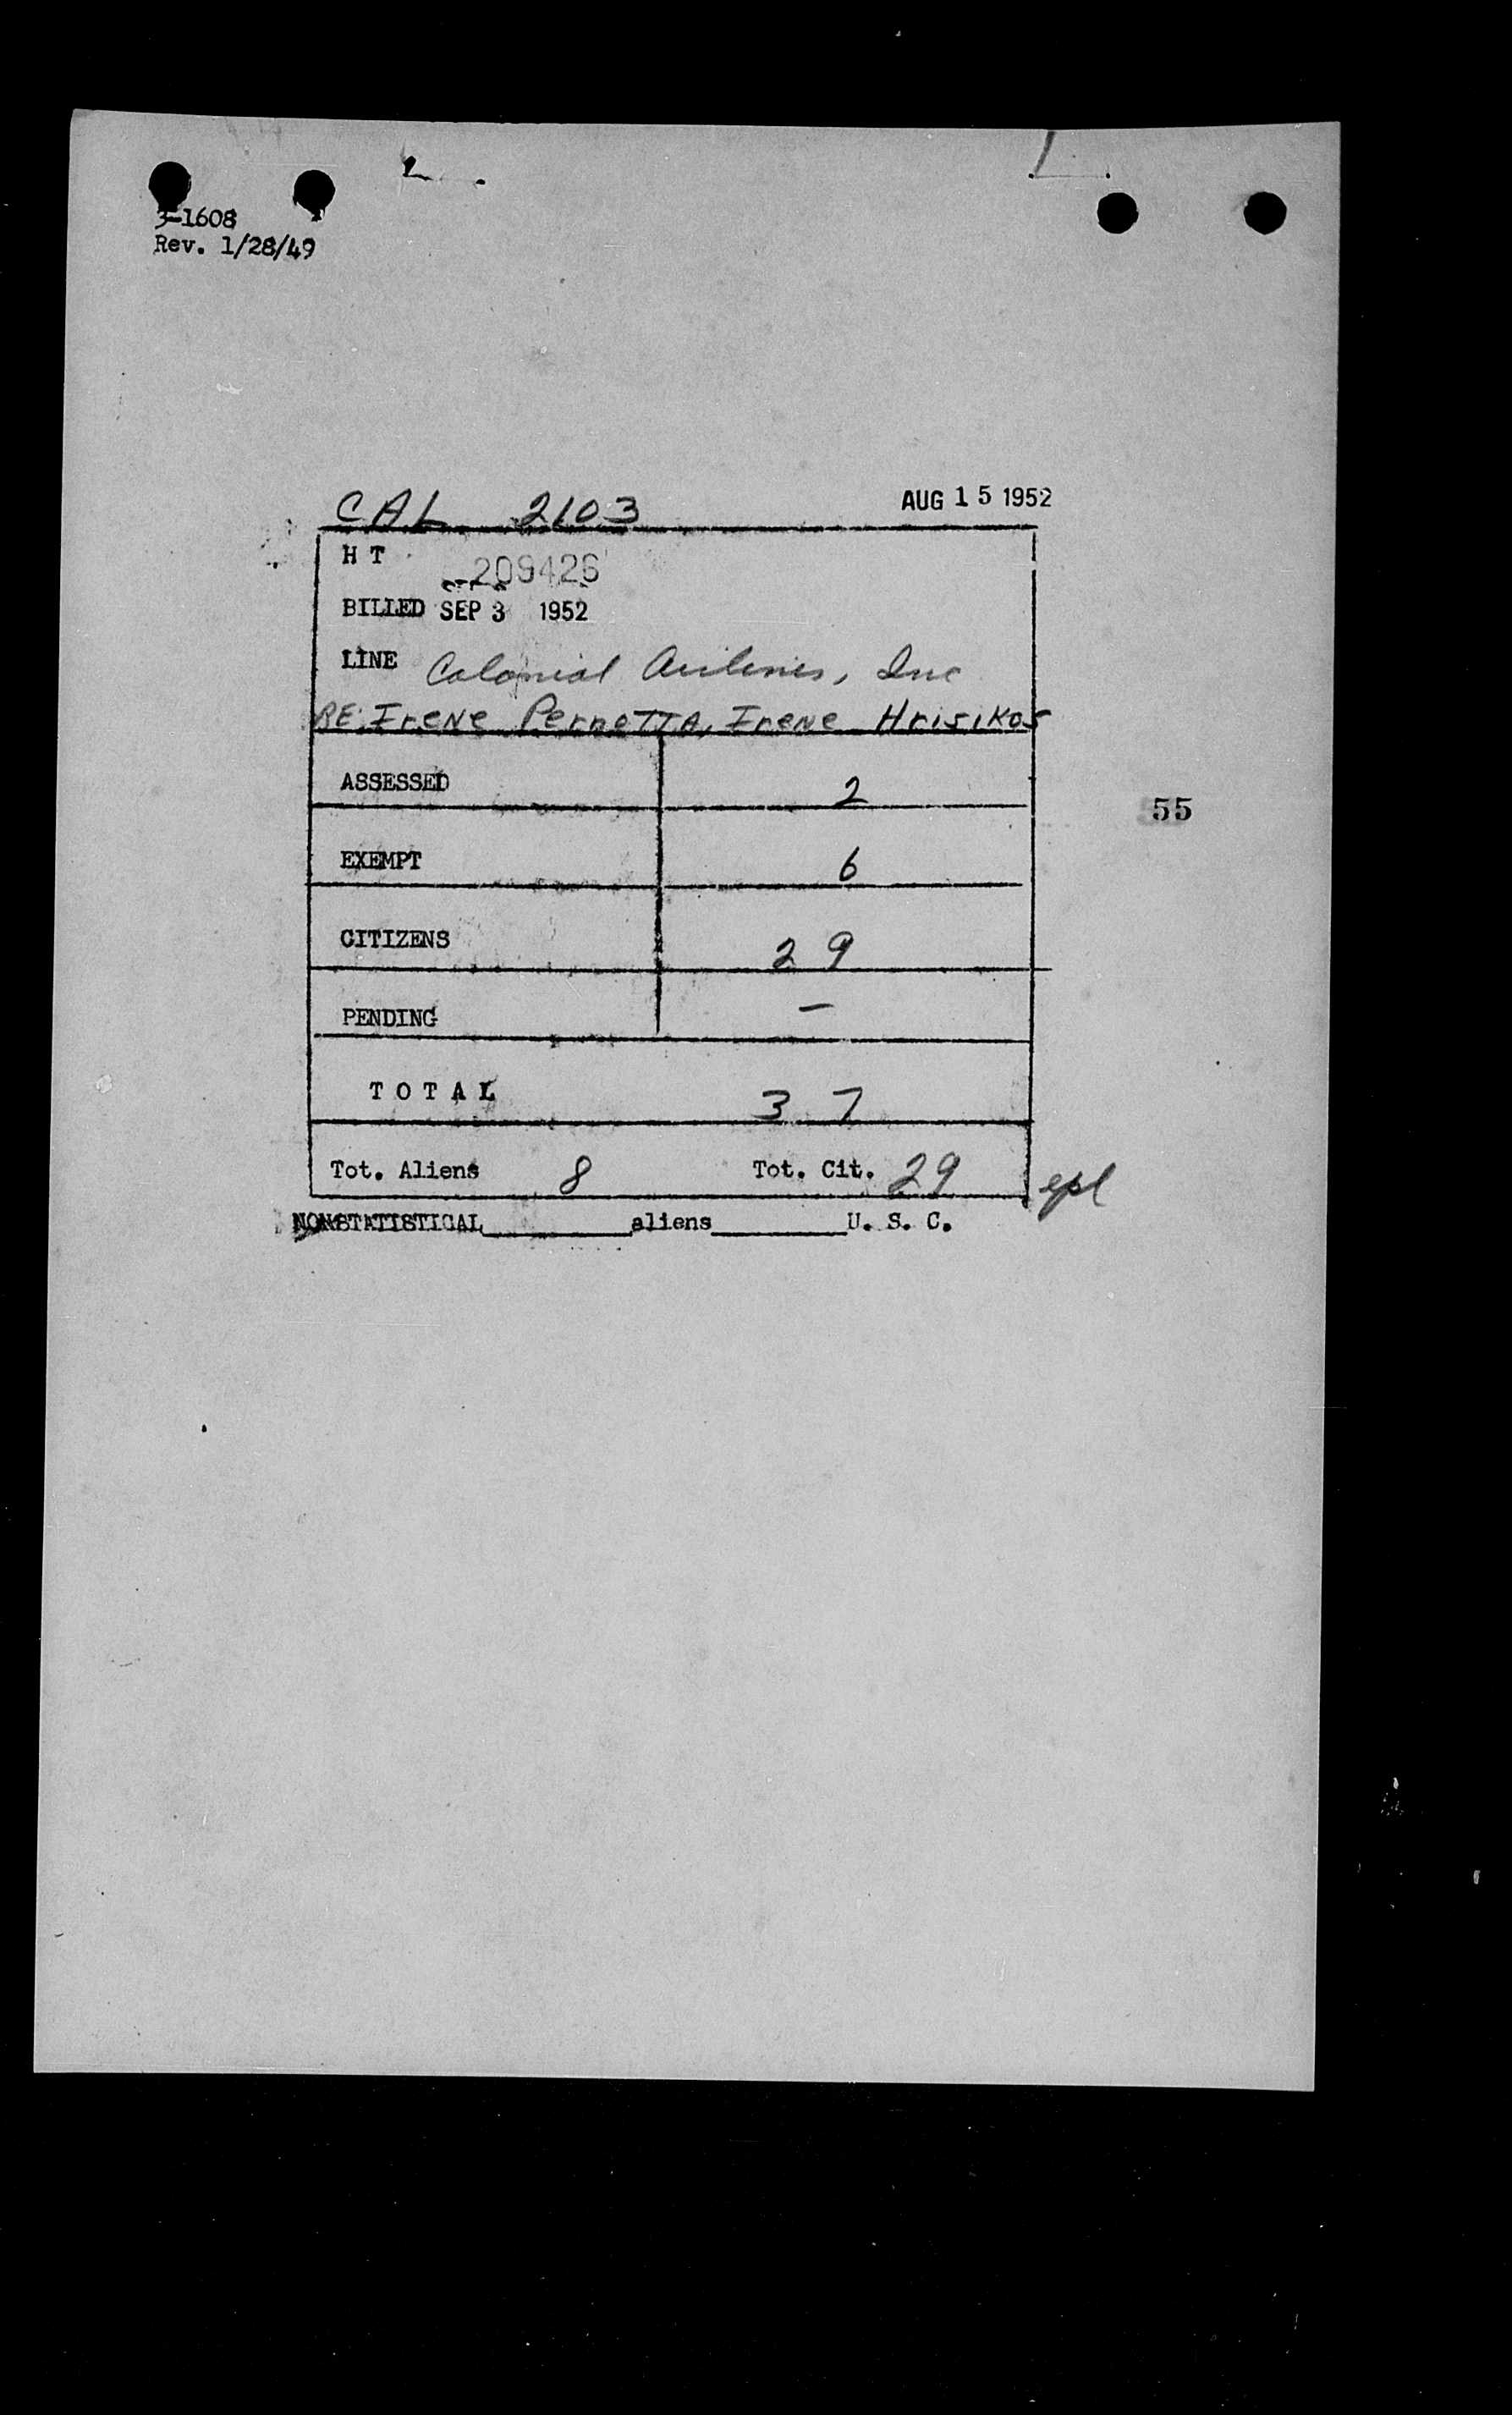 3-1608
Rev. 1/28/49
CAL 2103 AUG 15 1952
H T 209426
BILLED SEP 3 1952
LINE Colonial Airlines, Inc
RE: Irene Pernetta, Irene Hrisikos
ASSESSED 2
EXEMPT 6
55
CITIZENS 29
PENDING –
TOTAL 37
Tot. Aliens 8 Tot. Cit. 29 epl
NONSTATISTICAL________aliens________U. S. C.